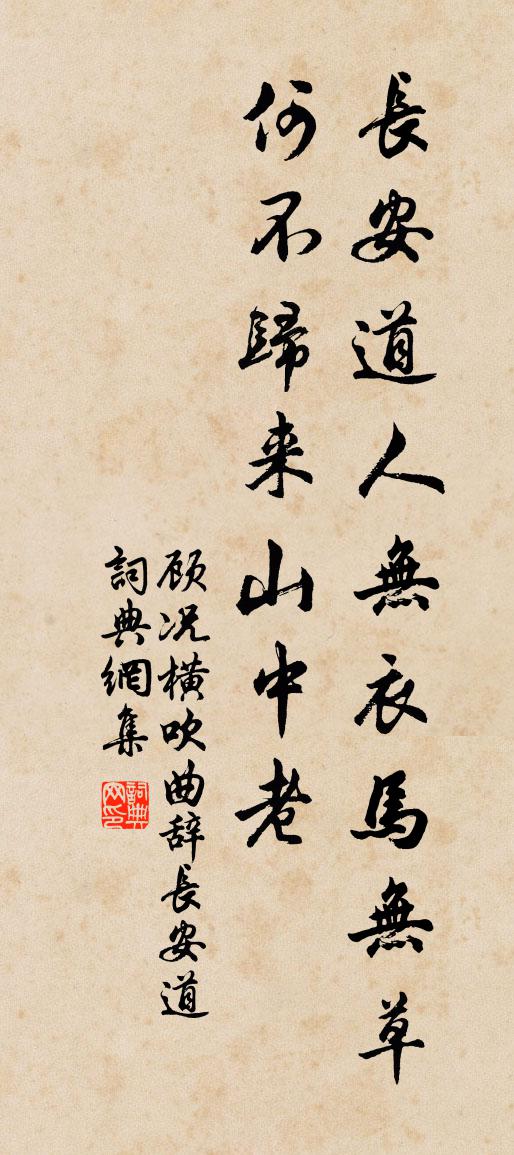 長安道人無衣馬無草
何不歸来山中老
顾况横吹曲辞長安道
詞典網集
詞典网印